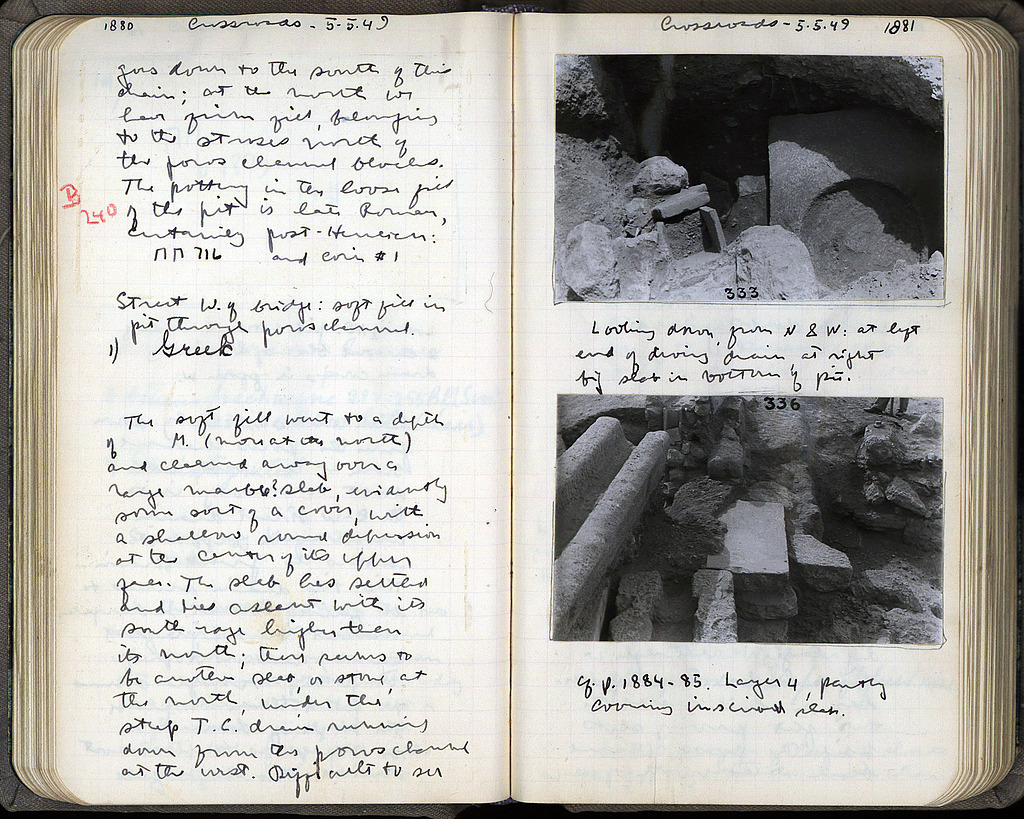 1880 Crossroads - 5.5.49
goes down to the south of this
drain; at the north we
have firm fill, belonging
to the stroses north of
the poros channel blocks.
The pottery in the loose fill
B
240
of the pit is late Roman,
certainly post-Herulian:
ΠΠ 716 and coin #1
Street W. of bridge: soft fill in
pit through poros channel.
1) Greek
The soft fill went to a depth
of M. (more at the north)
and cleaned away over a
large marble? slab, evidently
some sort of a cover, with
a shallow round depression
at the center of its upper
face. The slab has settled
and lies aslant with its
south edge higher than
its north; there seems to
be another slab, or stone, at
the north, under the
steep T.C. drain running
down from the poros channel
at the west. Difficult to see
Crossroads - 5.5.49 1881
333
Looking down, from N & W: at left
end of diving drain, at right
big slab in bottom of pit.
336
cf. p. 1884-85. Layer 4, partly
covering inscribed slab.